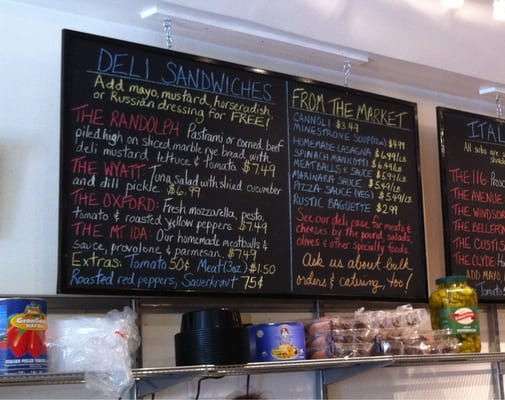 DELI SANDWICHES
Add mayo, mustard, horseradish
or Russian dressing for FREE!
THE RANDOLPH Pastrami or corned beef
piled high on sliced marble rye bread with
deli mustard, lettuce & tomato $7.49
THE WYATT Tuna salad with sliced cucumber
and dill pickle $6.99
THE OXFORD: Fresh mozzarella, pesto,
tomato & roasted yellow peppers $7.49
THE MT IDA: Our homemade meatballs &
sauce, provolone & parmesan $7.49
Extras: Tomato 50¢ Meat (3oz) $1.50
Roasted red peppers, Sauerkraut 75¢
FROM THE MARKET
CANNOLI $3.49
MINESTRONE SOUP $4.99
HOMEMADE LASAGNA $6.49/LB
SPINACH MANICOTTI $6.49/LB
MEATBALLS & SAUCE $5.99/LB
MARINARA SAUCE $5.49/LB
PIZZA SAUCE (VEG) $5.49/LB
RUSTIC BAGUETTE $2.99
See our deli case for meats &
cheeses by the pound, salads,
olives & other specialty foods
Ask us about bulk
orders & catering, too!
ITAL
All subs are
THE 116
THE AVENUE
THE WINDSOR
THE BELLEFO
THE CUSTIS
THE CLYDE
ADD MAYO,